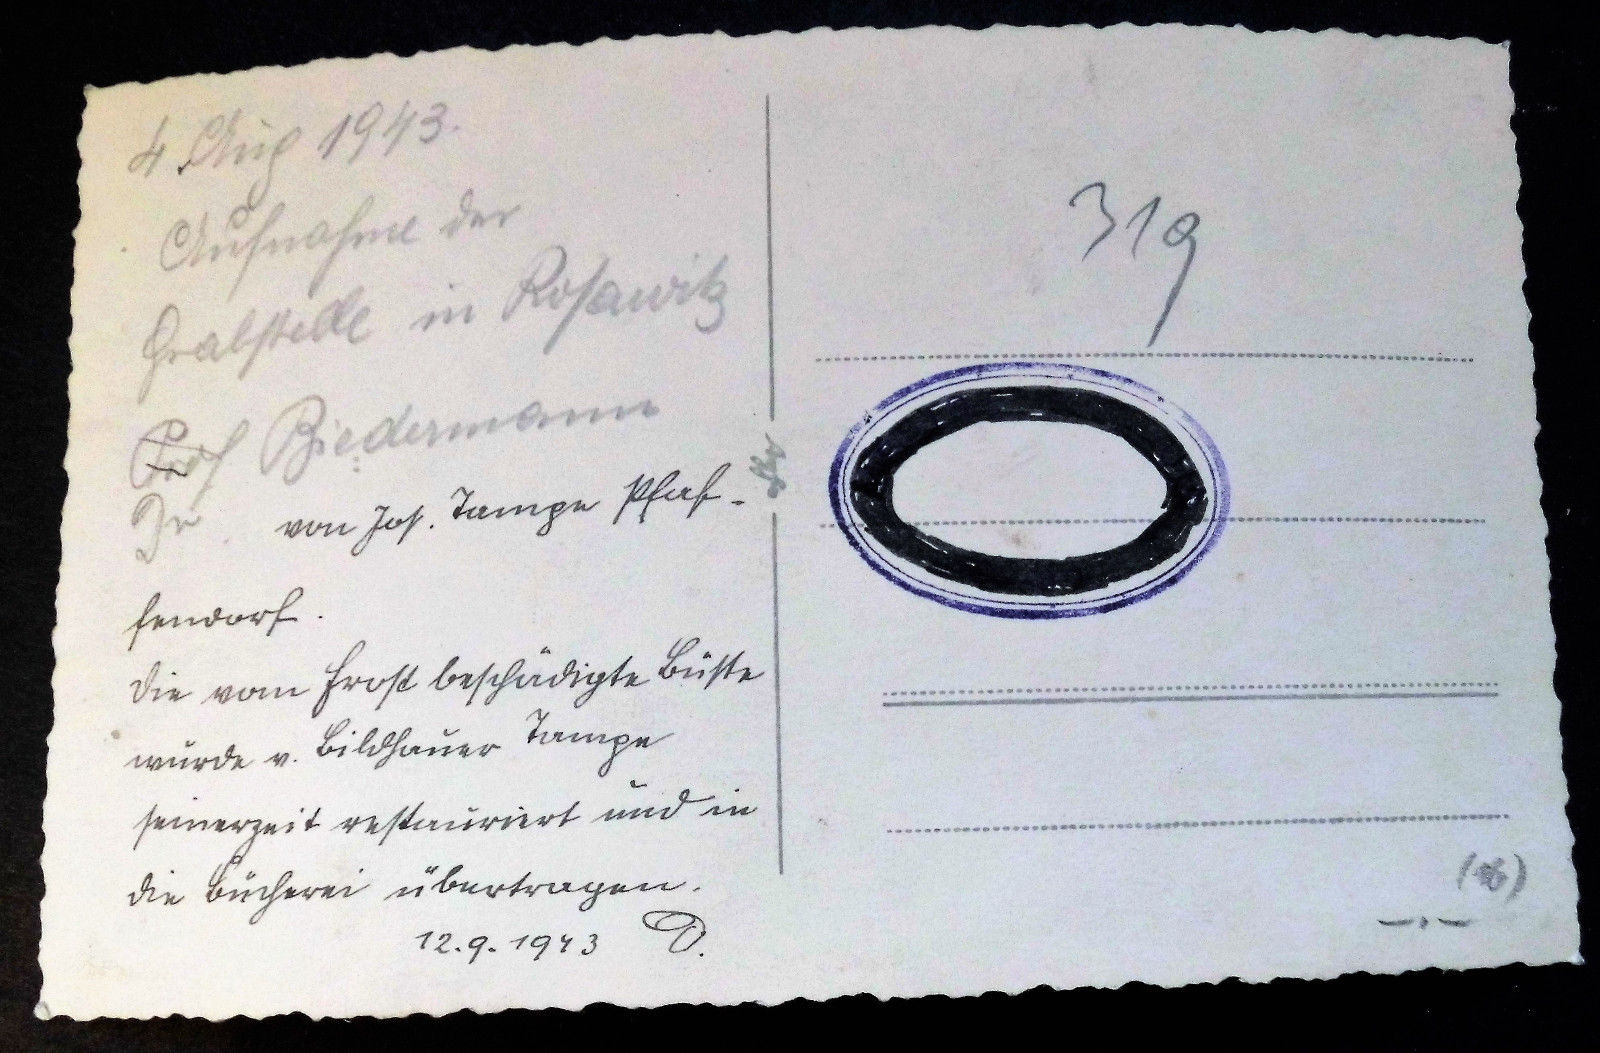 4. Aug 1943.
Aufnahme der
Grabstelle in Rosawitz
Prof Biedermann
von Jos. Tampe Pfaf-
fendorf.
Die vom Frost beschädigte Büste
wurde v. Bildhauer Tampe
seinerzeit restauriert und in
die Bücherei übertragen.
12.9.1943 D.
319